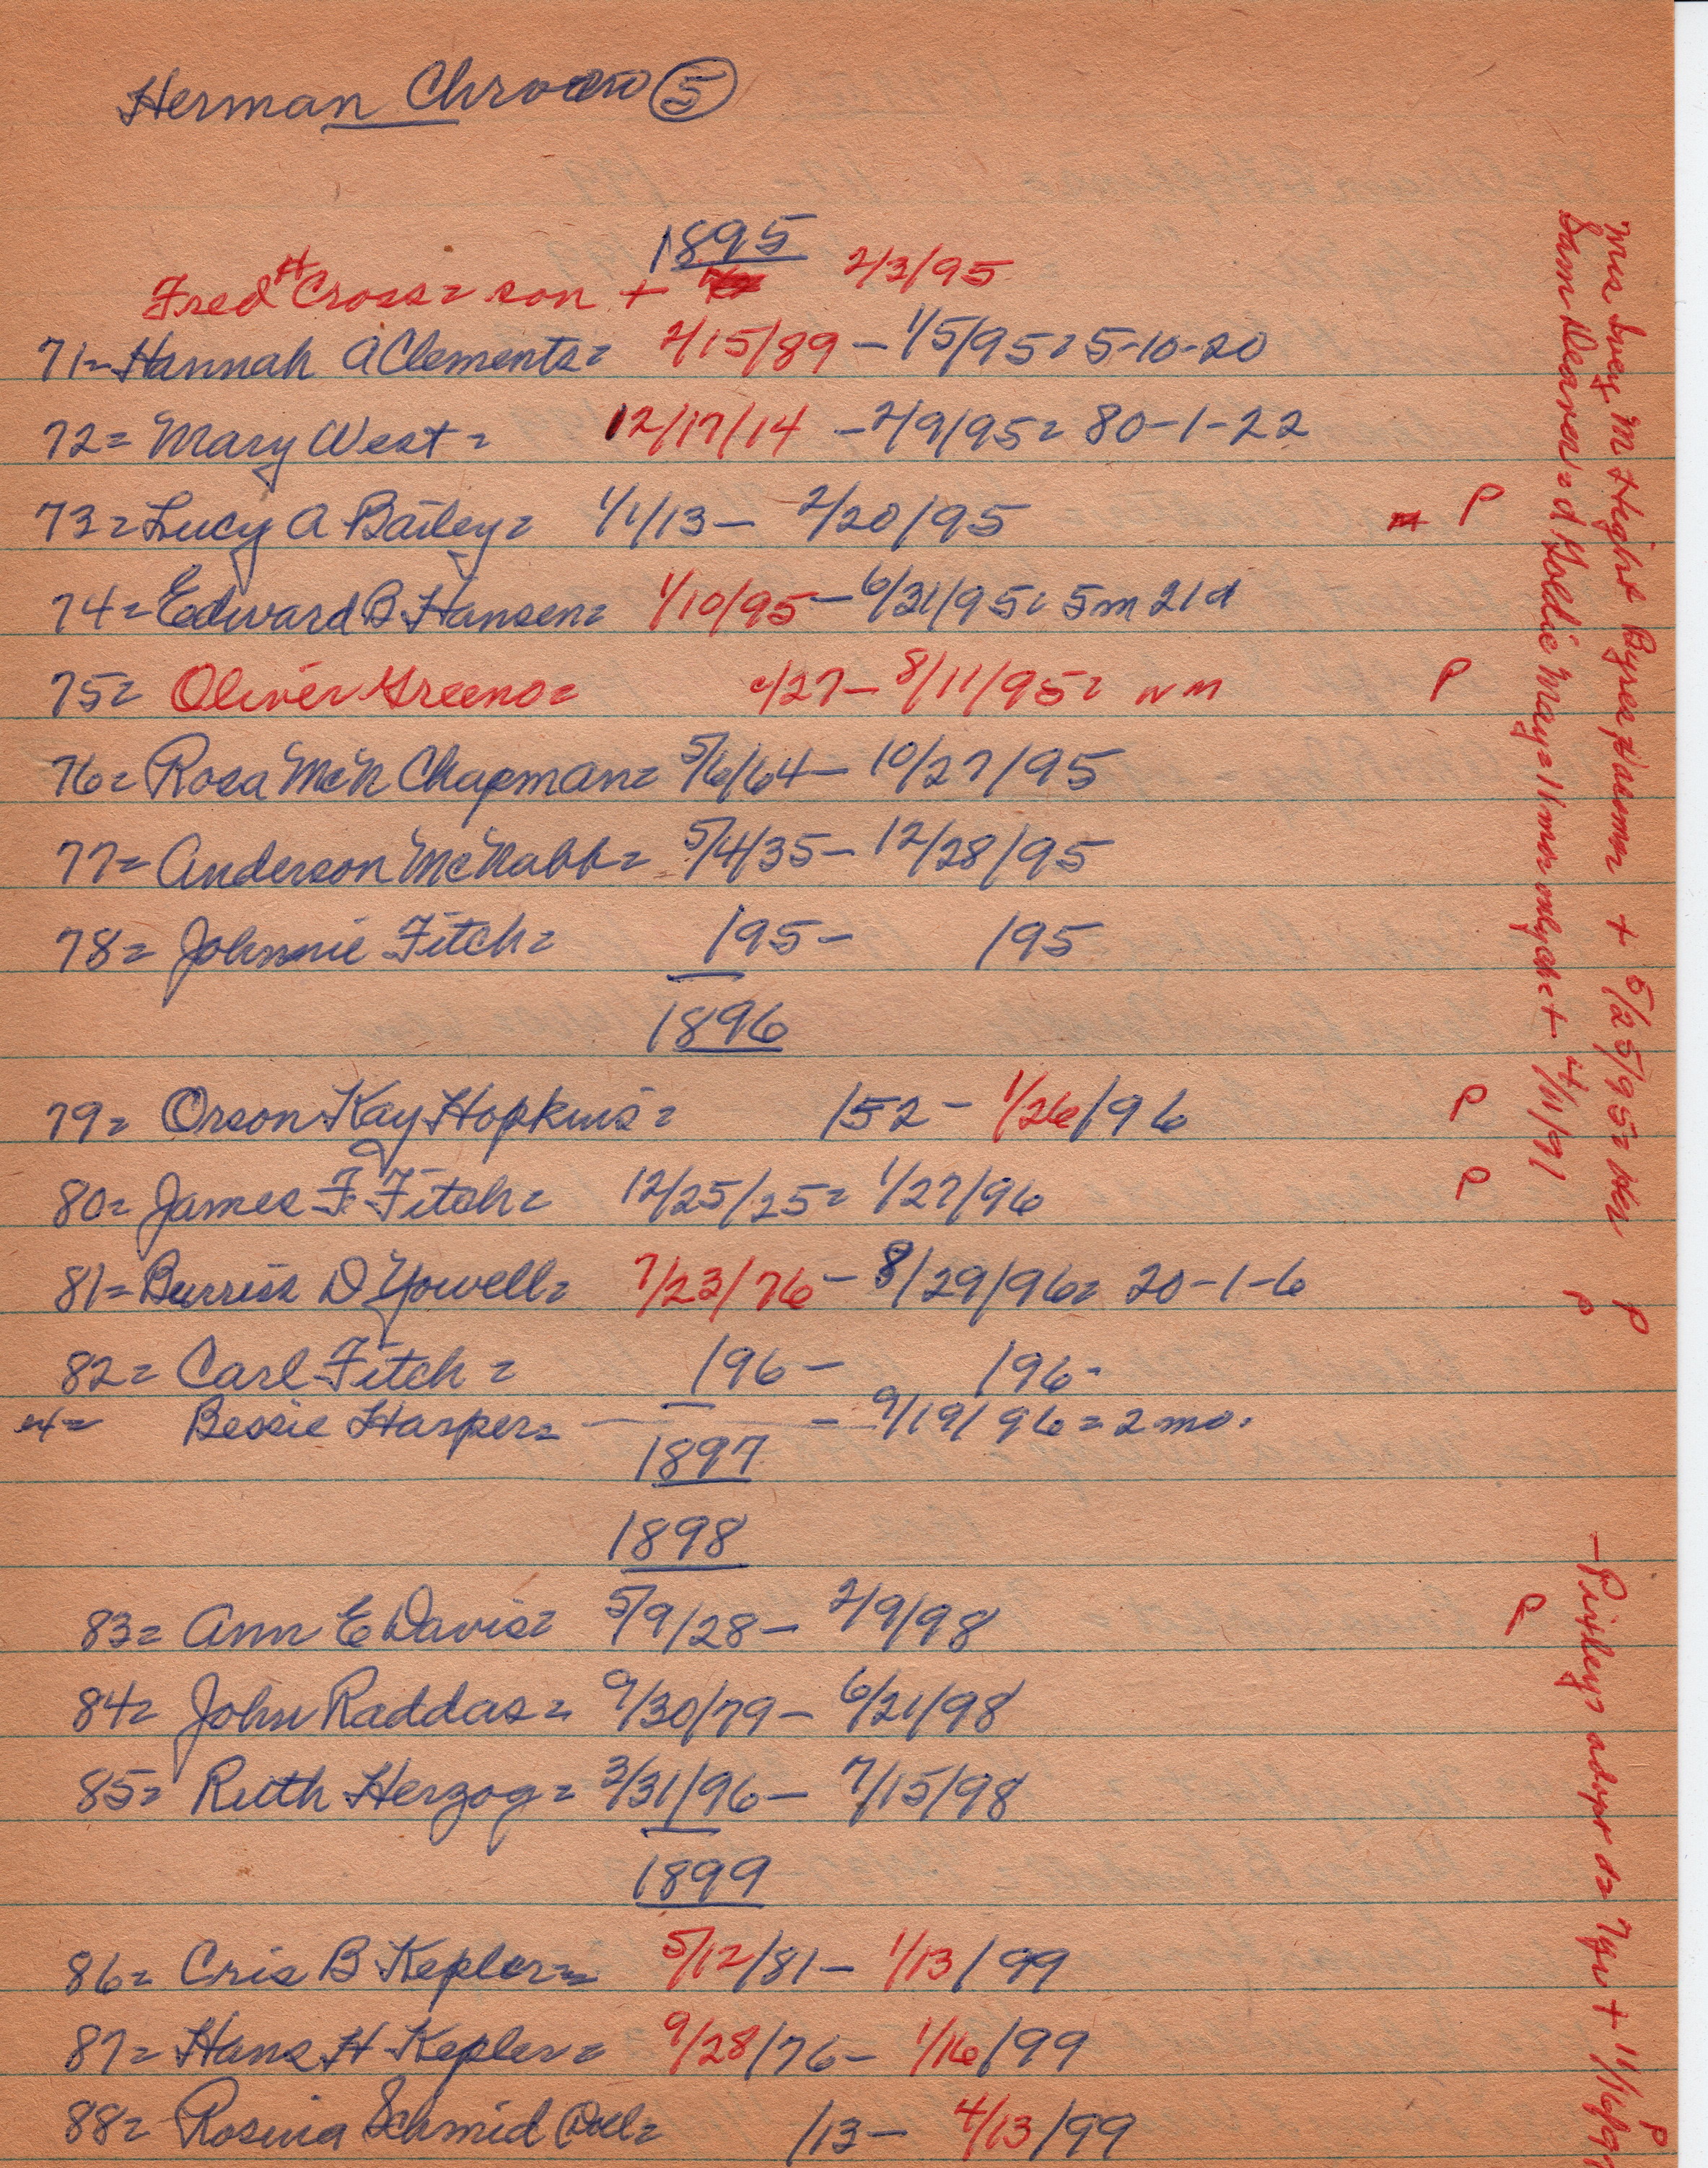 Herman Chrono 5
1895
Fred H Cross = son + 2/3/95
71= Hannah A Clements= 2/15/89 - 1/5/95= 5-10-20
72= Mary West= 12/17/14 - 2/9/95= 80-1-22
73= Lucy A Bailey= 1/1/13 - 2/20/95 P
74= Edward B Hansen= 1/10/95 - 6/31/95= 5m 21d
75= Oliver Greeno= /27 - 8/11/95= nm P
76= Rosa McN Chapman= 5/6/64 - 10/27/95
77= Anderson McNabb= 5/4/35 - 12/28/95
78= Johnnie Fitch= /95 - /95
1896
79= Orson Kay Hopkins= /52 - 1/26/96 P
80= James F. Fitch= 12/25/25= 1/27/96 P
81= Burriss D Yowell= 7/23/76 - 8/29/96= 20-1-6
82= Carl Fitch= /96 - /96-
x4= Bessie Harper= - 9/19/96 = 2 mo.
1897
1898
83= Ann E Davis= 5/9/28 - 2/9/98 P
84= John Raddas= 9/30/79 - 6/21/98
85= Ruth Herzog= 3/31/96 - 7/15/98
1899
86= Cris B Kepler= 5/12/81 - 1/13/99
87= Hans H Kepler= 9/28/76 - 1/16/99
88= Rosina Schmid Doll= /13 - 4/13/99
Mrs Ivey M Hight Byres + 5/25/95= P
Sam Weaver= d Goldie May= 11 mos only ch + 4/11/91 P
- Pixleys adopt d= 7yr + 11/16/97 P